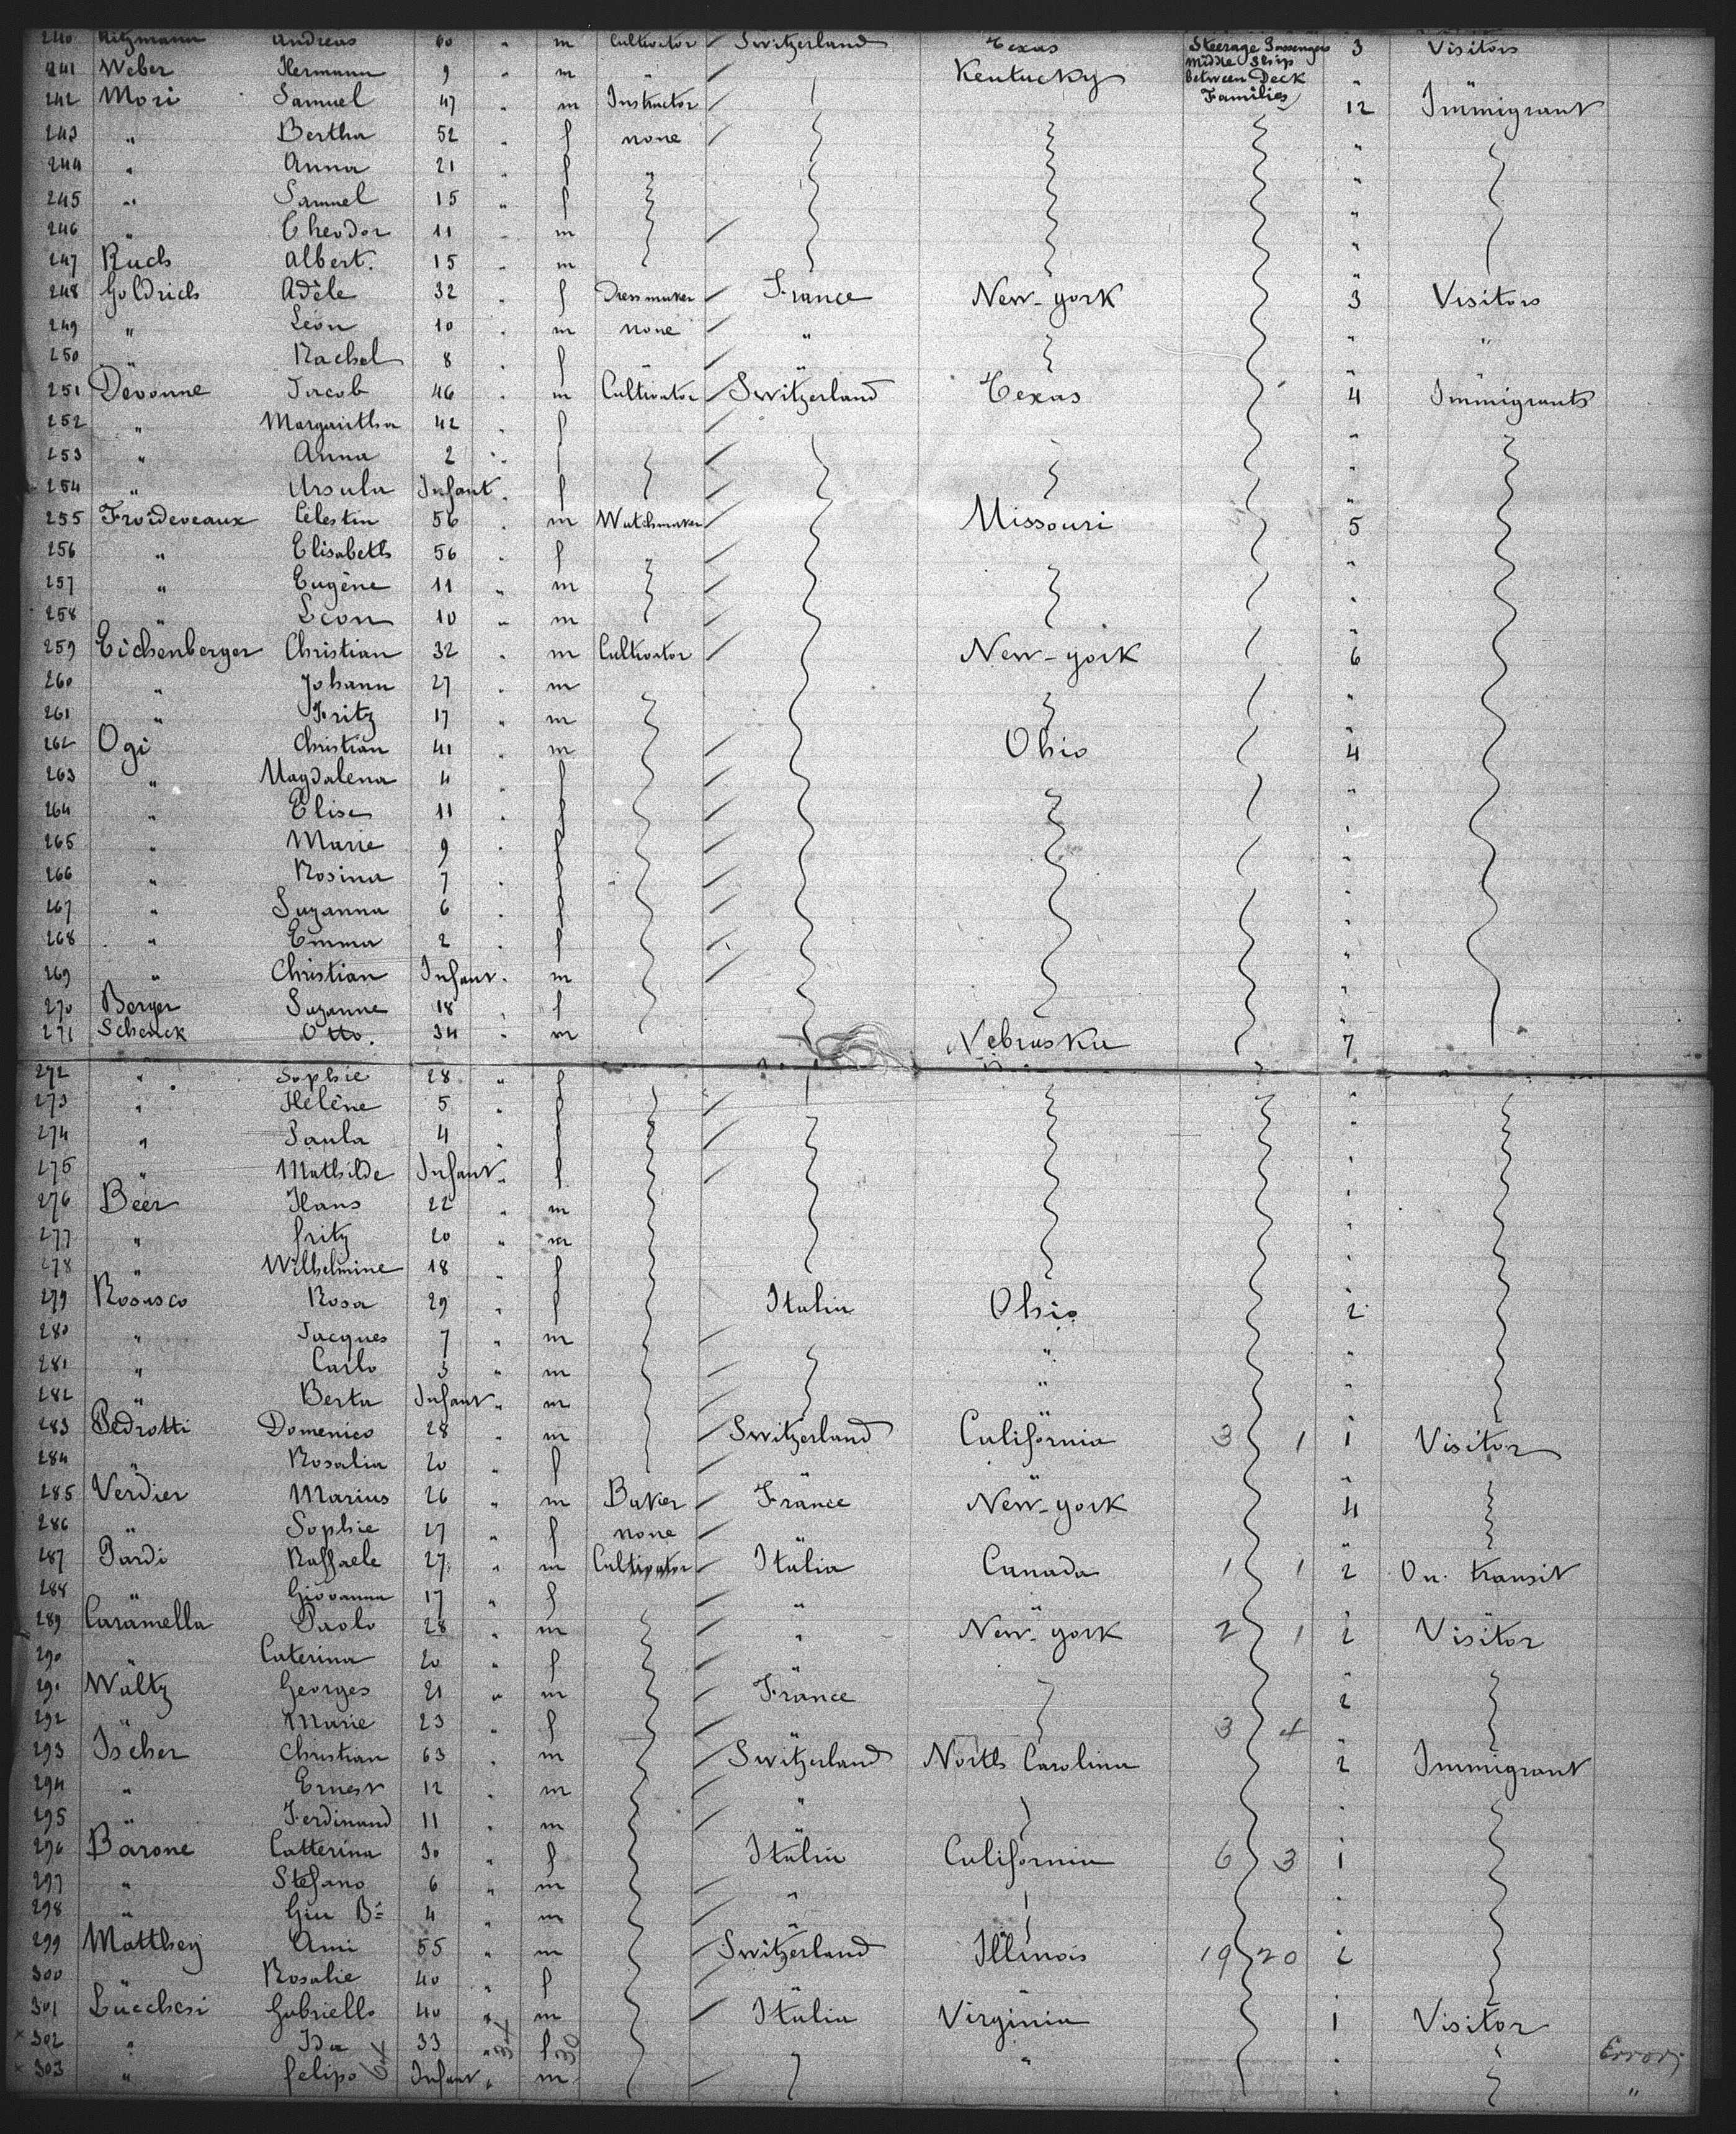 240 Ritzmann Andreas 60 " m Cultivator Switzerland Texas Steerage Passengers 3 Visitors
241 Weber Hermann 9 " m " Kentucky Middle Ship Between Deck "
242 Mori Samuel 47 " m Instructor Families 12 Immigrant
243 " Bertha 52 " f none "
244 " Anna 21 " f " "
245 " Samuel 15 " f "
246 " Theodor 11 " m "
247 Ruch Albert. 15 " m "
248 Goldrich Adèle 32 " f Dressmaker France New-york 3 Visitors
249 " Léon 10 " m none " " "
250 " Rachel 8 " f " "
251 Dévonne Jacob 46 " m Cultivator Switzerland Texas 4 Immigrants
252 " Margaritha 42 " f "
253 " Anna 2 " f "
254 " Ursula Infant " f "
255 Froideveaux Célestin 56 " m Watchmaker Missouri 5
256 " Elisabeth 56 " f "
257 " Eugène 11 " m "
258 " Léon 10 " m "
259 Eichenberger Christian 32 " m Cultivator New-york 6
260 " Johann 27 " m "
261 " Fritz 17 " m "
262 Ogi Christian 41 " m Ohio 4
263 " Magdalena 4 " f "
264 " Elise 11 " f "
265 " Marie 9 " f "
266 " Rosina 7 " f "
267 " Suzanna 6 " f "
268 " Emma 2 " f "
269 " Christian Infant " m "
270 Berger Suzanne 18 " f "
271 Schenck Otto. 34 " m Nebraska 7
272 " Sophie 28 " f "
273 " Hélène 5 " f "
274 " Paula 4 " f "
275 " Mathilde Infant " f "
276 Beer Hans 22 " m "
277 " Fritz 20 " m "
278 " Wilhelmine 18 " f "
279 Rosasco Rosa 29 " f Italia Ohio 2
280 " Jacques 7 " m " "
281 " Carlo 3 " m " "
282 " Berta Infant " m "
283 Pedrotti Domenico 28 " m Switzerland California 3 1 1 Visitor
284 " Rosalia 20 " f "
285 Verdier Marius 26 " m Baker France New-york 4
286 " Sophie 27 " f none "
287 Pardi Raffaele 27 " m Cultivator Italia Canada 1 1 2 On transit
288 " Giovanna 17 " f " "
289 Caramella Paolo 28 " m " New-york 2 1 2 Visitor
290 " Caterina 20 " f "
291 Waltz Georges 21 " m France 2
292 " Marie 23 " f 3 4 "
293 Ischer Christian 63 " m Switzerland North Carolina 2 Immigrant
294 " Ernest 12 " m " "
295 " Ferdinand 11 " m "
296 Barone Catterina 30 " f Italia California 6 3 1
297 " Stefano 6 " m " "
298 " Giu Ba 4 " m "
299 Matthey Ami 55 " m Switzerland Illinois 19 20 2
300 " Rosalie 40 " f "
301 Lucchesi Gabriello 40 " m Italia Virginia 1 Visitor
x 302 " Ida 33 " f " Error
x 303 " Felipo 64 Infant " 34 m 30 " "